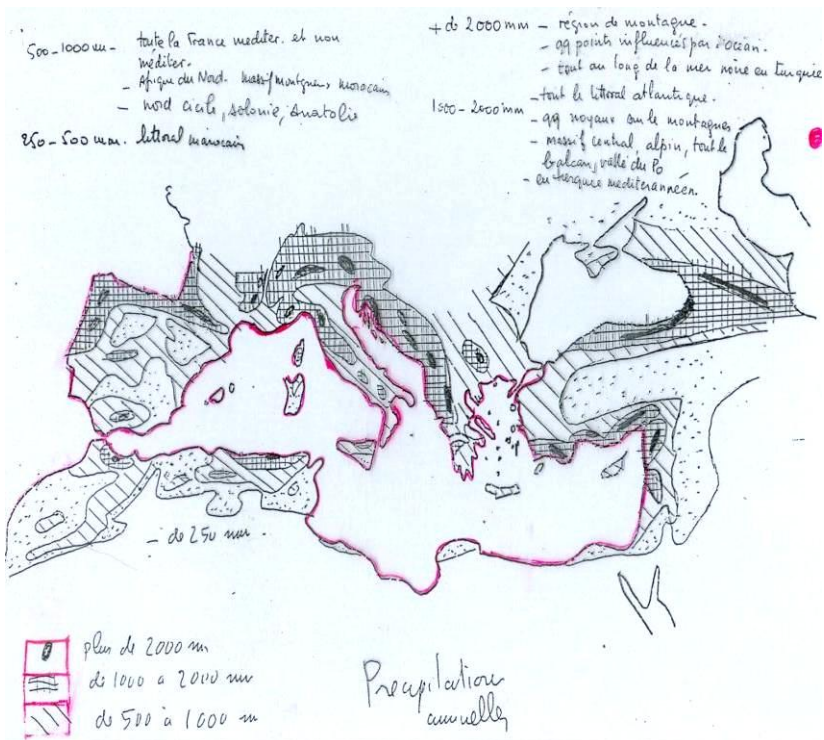 500-1000 mm - toute la France mediter. et non
méditer.
- Afrique du Nord. massif montagneux marocain
- nord cicile, Anatolie
250-500 mm. littoral marocain
+ de 2000 mm - région de montagne.
- qq points influencés par l'océan.
- tout au long de la mer noire en turquie
1000-2000 mm - tout le littoral atlantique.
- qq noyaux sur le montagnes
- massif central, alpin, tout le
balcan, vallé du Po
- en turquie mediterannéen.
- de 250 mm
plus de 2000 mm
de 1000 a 2000 mm
de 500 à 1000 m
Precipitations
annuelles